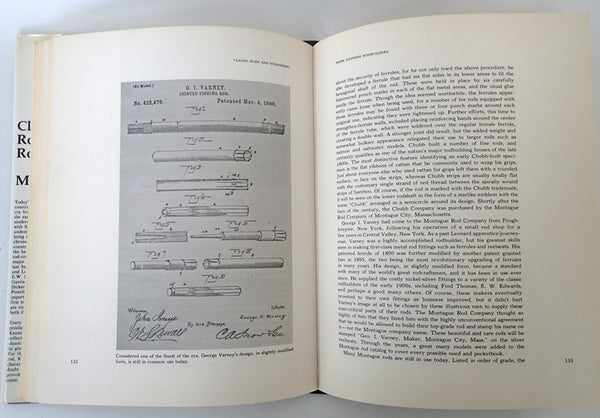 Cl
Ro
Ro
M
Today
CLASSIC RODS AND RODMAKERS
(No Model.)
G. I. VARNEY.
JOINTED FISHING ROD.
No. 422,470.
Patented Mar. 4, 1890.
Fig. 1
Fig. 2
Fig. 3
Fig. 4
Fig. 5
Fig. 6
Fig. 7
Witnesses
Inventor
George I. Varney
By his Attorneys
C.A. Snow & Co.
Considered one of the finest of the era, George Varney's design, in slightly modified
form, is still in common use today.
132
MORE EASTERN RODBUILDERS
about the security of ferrules, for he not only tried the above procedure, he
also developed a ferrule that had six flat sides in its lower areas to fit the
hexagonal shaft of the rod. These he carefully cemented into place and
hammered punch marks in each of the flat metal areas, and the usual glue
inside the ferrule. Though the idea seemed worthwhile, the ferrules appar-
ently came loose when being used, for a number of his rods equipped with
these ferrules may be found with three or four punch marks around each
original one, indicating they were tightened up. Further efforts, this time to
strengthen ferrule walls, included placing reinforcing bands around the center
of the ferrule tube, which were soldered over the regular female ferrule,
creating a double wall. A stronger joint did result, but the added weight and
somewhat bulkier appearance relegated their use to larger rods such as
salmon and saltwater models. Chubb built a number of fine rods, and
certainly qualifies as one of the nation's major rodbuilding houses of the late
1800s. The most distinctive feature identifying an early Chubb-built speci-
men is the flat ribbons of rattan that he commonly used to wrap his grips.
Just about everyone else who used rattan for grips left them with a rounded
surface, or face on the strips, whereas Chubb strips are usually totally flat
with the customary single strand of red thread between the spirally wound
bands of rattan. Of course, if the rod is marked with the Chubb trademark,
it will be seen on the lower rodshaft in the form of a starlike emblem with the
name "Chubb" arranged in a semicircle around its design. Shortly after the
turn of the century, the Chubb Company was purchased by the Montague
Rod Company of Montague City, Massachusetts.
George I. Varney had come to the Montague Rod Company from Pough-
keepsie, New York, following his operation of a small rod shop for a
few years in Central Valley, New York. As a past Leonard apprentice/journey-
man, Varney was a highly accomplished rodbuilder, but his greatest skills
were in making first-class metal rod fittings such as ferrules and reelseats. His
patented ferrule of 1890 was further modified by another patent granted
him in 1895, the two being the most revolutionary upgrading of ferrules
by many. His design, in slightly modified form, became a standard with
many of the world's great rodcraftsmen, and it has been in use ever
since. He supplied the costly nickel-silver fittings to a number of the classic
rodbuilders of the early 1900s, including Fred Thomas, E. W. Edwards,
and perhaps many others. Of course, these makers eventually
moved to their own fittings as business improved, but it didn't hurt
Varney's image at all to be chosen by these illustrious men to supply these
ever-critical parts of their rods. The Montague Rod Company thought so
highly of him that they hired him with the highly unconventional agreement
that he would be allowed to build their top-grade rod and stamp his name on
it—not the Montague company name. These beautiful and rare rods will be
stamped "Geo. I. Varney, Maker, Montague City, Mass." on the silver
reelseats. Through the years, a great many models were added to the
Montague rod catalog to cover every possible need and pocketbook.
Many Montague rods are still in use today. Listed in order of grade, the
133